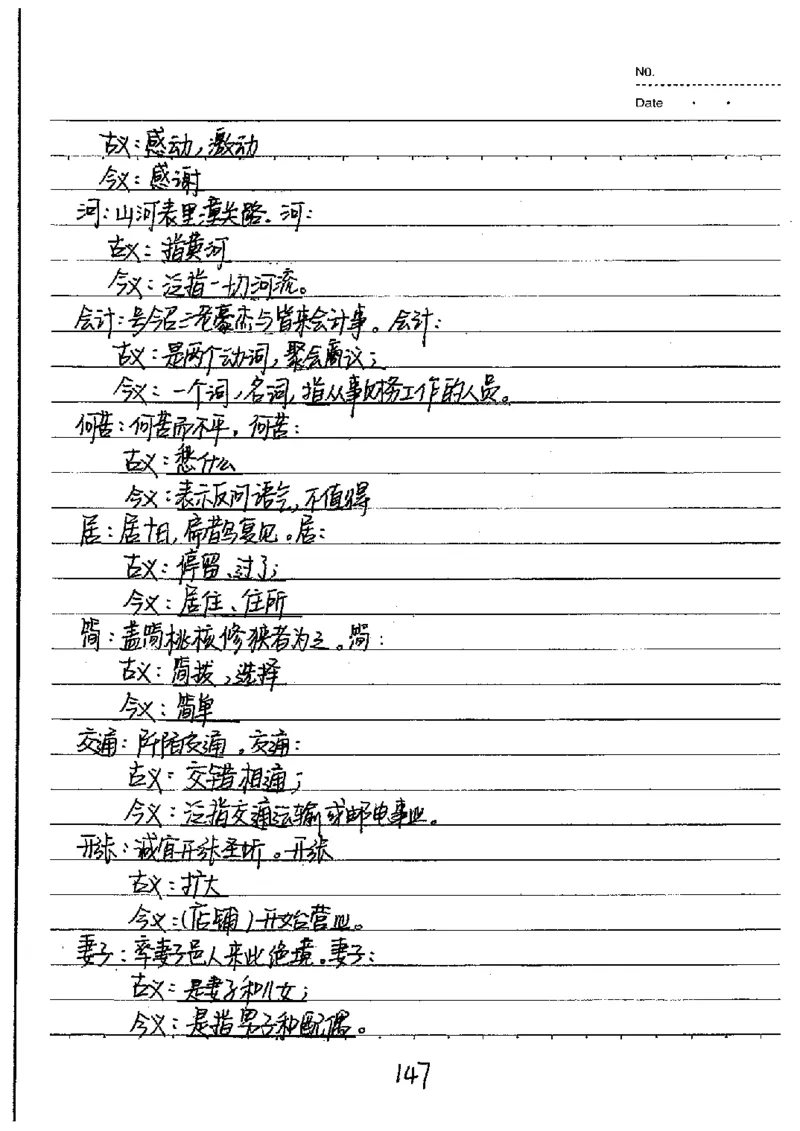 No.
Date
古义：感动，激动
今义：感谢
河：山河表里潼关路。河：
古义：指黄河
今义：泛指一切河流。
会计：号令召三老豪杰与皆来会计事。会计：
古义：是两个动词，聚会商议；
今义：一个词，名词，指从事财务工作的人员。
何苦：何苦而不平，何苦：
古义：愁什么
今义：表示反问语气，不值得
居：居十日，扁鹊复见。居：
古义：停留、过了；
今义：居住、住所
简：盖简桃核修狭者为之。简：
古义：简拔，选择
今义：简单
交通：阡陌交通。交通：
古义：交错相通；
今义：泛指交通运输或邮电事业。
开张：诚宜开张圣听。开张
古义：扩大
今义：(店铺)开始营业。
妻子：率妻子邑人来此绝境。妻子：
古义：是妻子和儿女；
今义：是指男子和配偶。
147